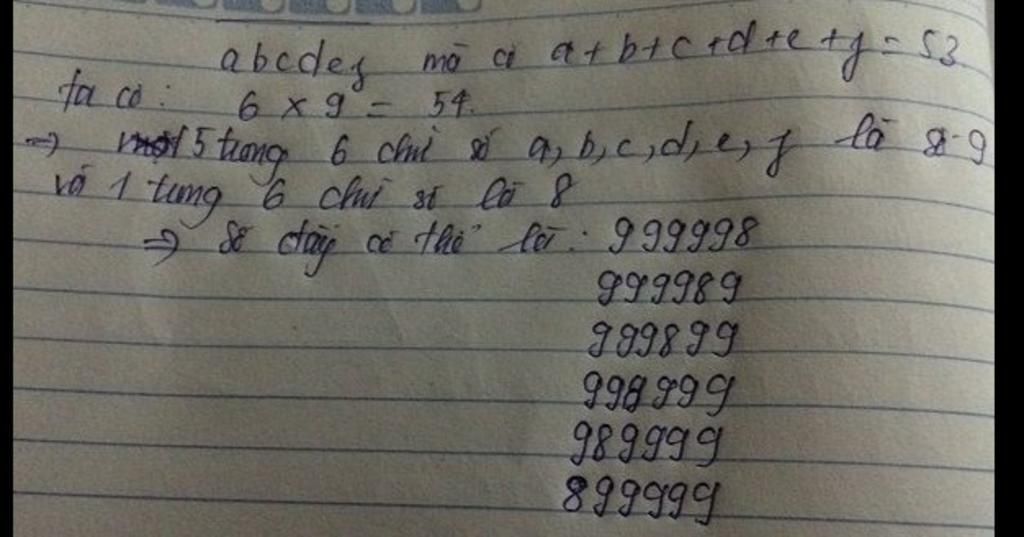 abcdef mà có a+b+c+d+e+f = 53
ta có: 6 x 9 = 54.
=> 5 trong 6 chữ số a, b, c, d, e, f là 9
và 1 trong 6 chữ số là 8
=> Số đây có thể là: 999998
999989
999899
998999
989999
899999